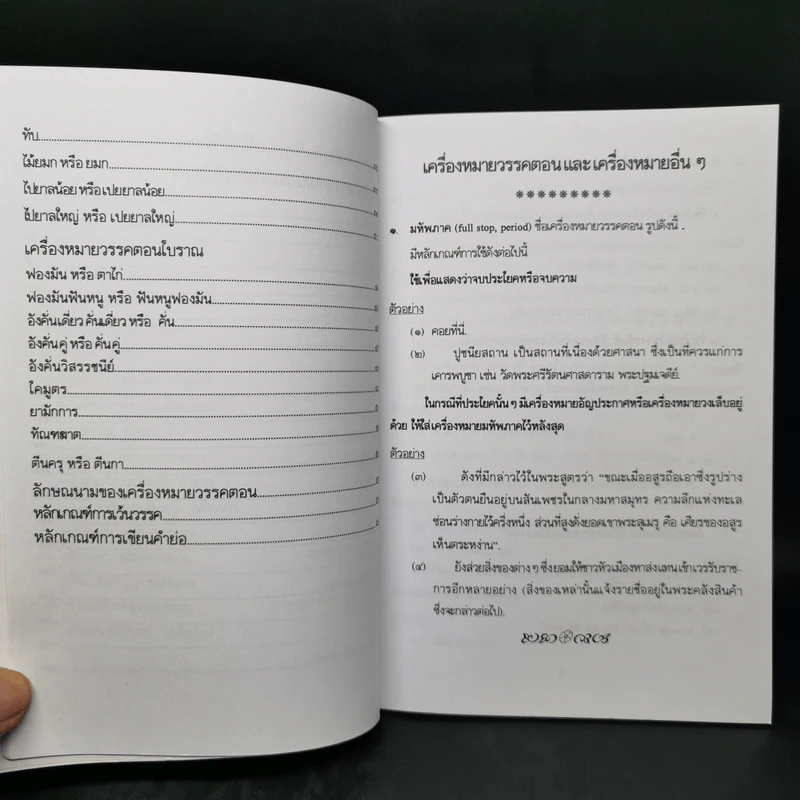 ทับ
ไม้ยมก หรือ ยมก
ไปยาลน้อย หรือ เปยยาลน้อย
ไปยาลใหญ่ หรือ เปยยาลใหญ่
เครื่องหมายวรรคตอนโบราณ
ฟองมัน หรือ ตาไก่
ฟองมันฟันหนู หรือ ฟันหนูฟองมัน
อังคั่นเดี่ยว คั่นเดี่ยว หรือ คั่น
อังคั่นคู่ หรือ คั่นคู่
อังคั่นวิสรรชนีย์
โคมูตร
ยามักการ
ทัณฑฆาต
ตีนครุ หรือ ตีนกา
ลักษณนามของเครื่องหมายวรรคตอน
หลักเกณฑ์การเว้นวรรค
หลักเกณฑ์การเขียนคำย่อ
เครื่องหมายวรรคตอน และ เครื่องหมายอื่น ๆ
๑. มหัพภาค (full stop, period) ชื่อเครื่องหมายวรรคตอน รูปดังนี้ .
มีหลักเกณฑ์การใช้ดังต่อไปนี้
ใช้เพื่อแสดงว่าจบประโยคหรือจบความ
ตัวอย่าง
(๑) คอยที่นี่.
(๒) ปูชนียสถาน เป็นสถานที่เนื่องด้วยศาสนา ซึ่งเป็นที่ควรแก่การ
เคารพบูชา เช่น วัดพระศรีรัตนศาสดาราม พระปฐมเจดีย์.
ในกรณีที่ประโยคนั้น ๆ มีเครื่องหมายอัญประกาศหรือเครื่องหมายวงเล็บอยู่
ด้วย ให้ใส่เครื่องหมายมหัพภาคไว้หลังสุด
ตัวอย่าง
(๓) ดังที่มีกล่าวไว้ในพระสูตรว่า "ขณะเมื่ออสูรถือเอาซึ่งรูปร่าง
เป็นตัวตนยืนอยู่บนสันเพชรในกลางมหาสมุทร ความลึกแห่งทะเล
ซ่อนร่างกายไว้ครึ่งหนึ่ง ส่วนที่สูงดังยอดเขาพระสุเมรุ คือ เศียรของอสูร
เห็นตระหง่าน".
(๔) ยังส่วยสิ่งของต่าง ๆ ซึ่งยอมให้ชาวหัวเมืองหาส่งแทนเข้าเวรรับราช-
การอีกหลายอย่าง (สิ่งของเหล่านั้นแจ้งรายชื่ออยู่ในพระคลังสินค้า
ซึ่งจะกล่าวต่อไป).